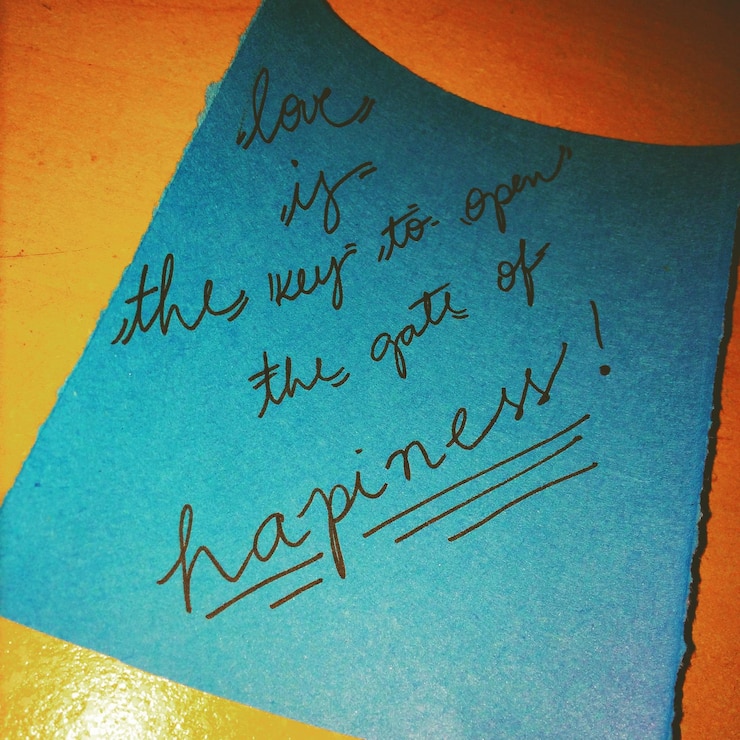 love
is
the key to open
the gate of
hapiness!